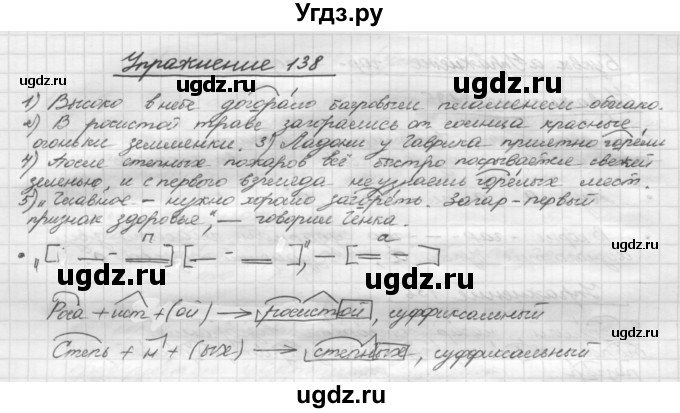 Угдз.ру
Упражнение 138
1) Высоко в небе догорало багровым пламенем облако.
2) В росистой траве загорались от солнца красные
огоньки земляники. 3) Ладони у Гаврика приятно горели
4) После степных пожаров всё быстро покрывается свежей
зеленью, и с первого взгляда не узнаешь горелых мест.
5) "Главное – нужно хорошо загореть. Загар – первый
признак здоровья", – говорил Генка.
Роса + ист + (ой) → росистой, суффиксальный
Степь + н + (ых) → степных, суффиксальный
ugdz.ru
ugdz.ru
ugdz.ru
ugdz.ru
ugdz.ru
ugdz.ru
ugdz.ru
ugdz.ru
ugdz.ru
ugdz.ru
ugdz.ru
ugdz.ru
Угдз.ру